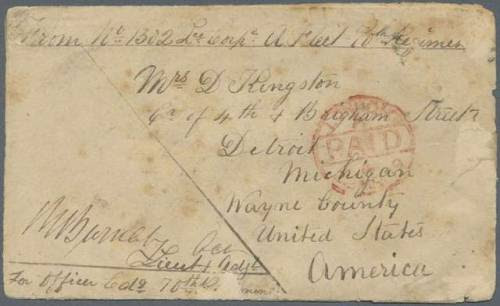 From No 1302 Lce Corpl A Peet 70th Regimen
Mrs D Kingston
Cr of 4th & Brigham Street
Detroit
Michigan
Wayne County
United States
America
PAID
Lieut & Adjt
For Officer Cdg 70th